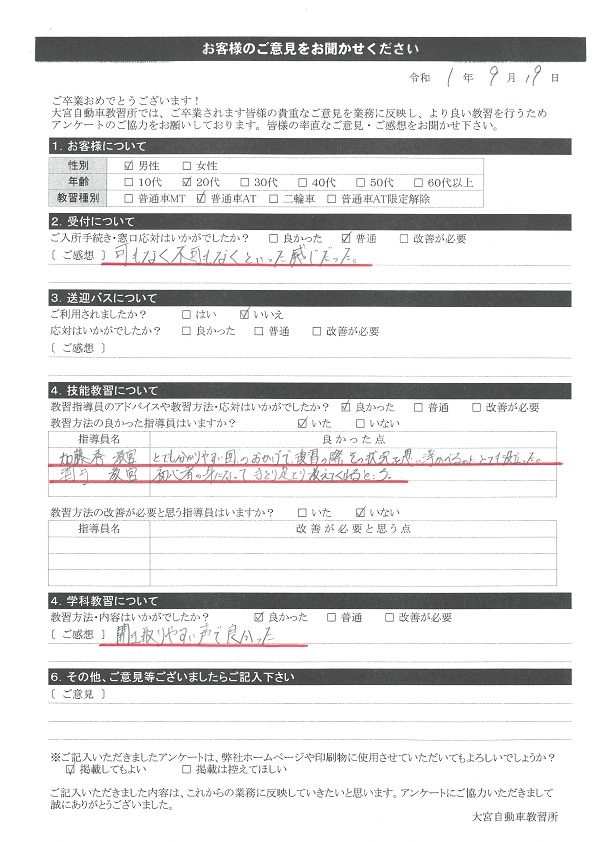 お客様のご意見をお聞かせください
令和 1 年 9 月 19 日
ご卒業おめでとうございます！
大宮自動車教習所では、ご卒業されます皆様の貴重なご意見を業務に反映し、より良い教習を行うため
アンケートのご協力をお願いしております。皆様の率直なご意見・ご感想をお聞かせ下さい。
1. お客様について
性別 ☑ 男性 □ 女性
年齢 □ 10代 ☑ 20代 □ 30代 □ 40代 □ 50代 □ 60代以上
教習種別 □ 普通車MT ☑ 普通車AT □ 二輪車 □ 普通車AT限定解除
2. 受付について
ご入所手続き・窓口応対はいかがでしたか？ □ 良かった ☑ 普通 □ 改善が必要
〔 ご感想 〕 可もなく不可もなくといった感じだった。
3. 送迎バスについて
ご利用されましたか？ □ はい ☑ いいえ
応対はいかがでしたか？ □ 良かった □ 普通 □ 改善が必要
〔 ご感想 〕
4. 技能教習について
教習指導員のアドバイスや教習方法・応対はいかがでしたか？ ☑ 良かった □ 普通 □ 改善が必要
教習方法の良かった指導員はいますか？ ☑ いた □ いない
指導員名 良かった点
教官 とても分かりやすい図のおかげで、復習の際、その状況を思い浮かべるのにとても役立った。
教官 初心者の身になって手とり足とり教えてくれるところ。
教習方法の改善が必要と思う指導員はいますか？ □ いた ☑ いない
指導員名 改善が必要と思う点
4. 学科教習について
教習方法・内容はいかがでしたか？ ☑ 良かった □ 普通 □ 改善が必要
〔 ご感想 〕 聞き取りやすい声で良かった
6. その他、ご意見等ございましたらご記入下さい
〔 ご意見 〕
※ご記入いただきましたアンケートは、弊社ホームページや印刷物に使用させていただいてもよろしいでしょうか？
☑ 掲載してもよい □ 掲載は控えてほしい
ご記入いただきました内容は、これからの業務に反映していきたいと思います。アンケートにご協力いただきまして
誠にありがとうございました。
大宮自動車教習所